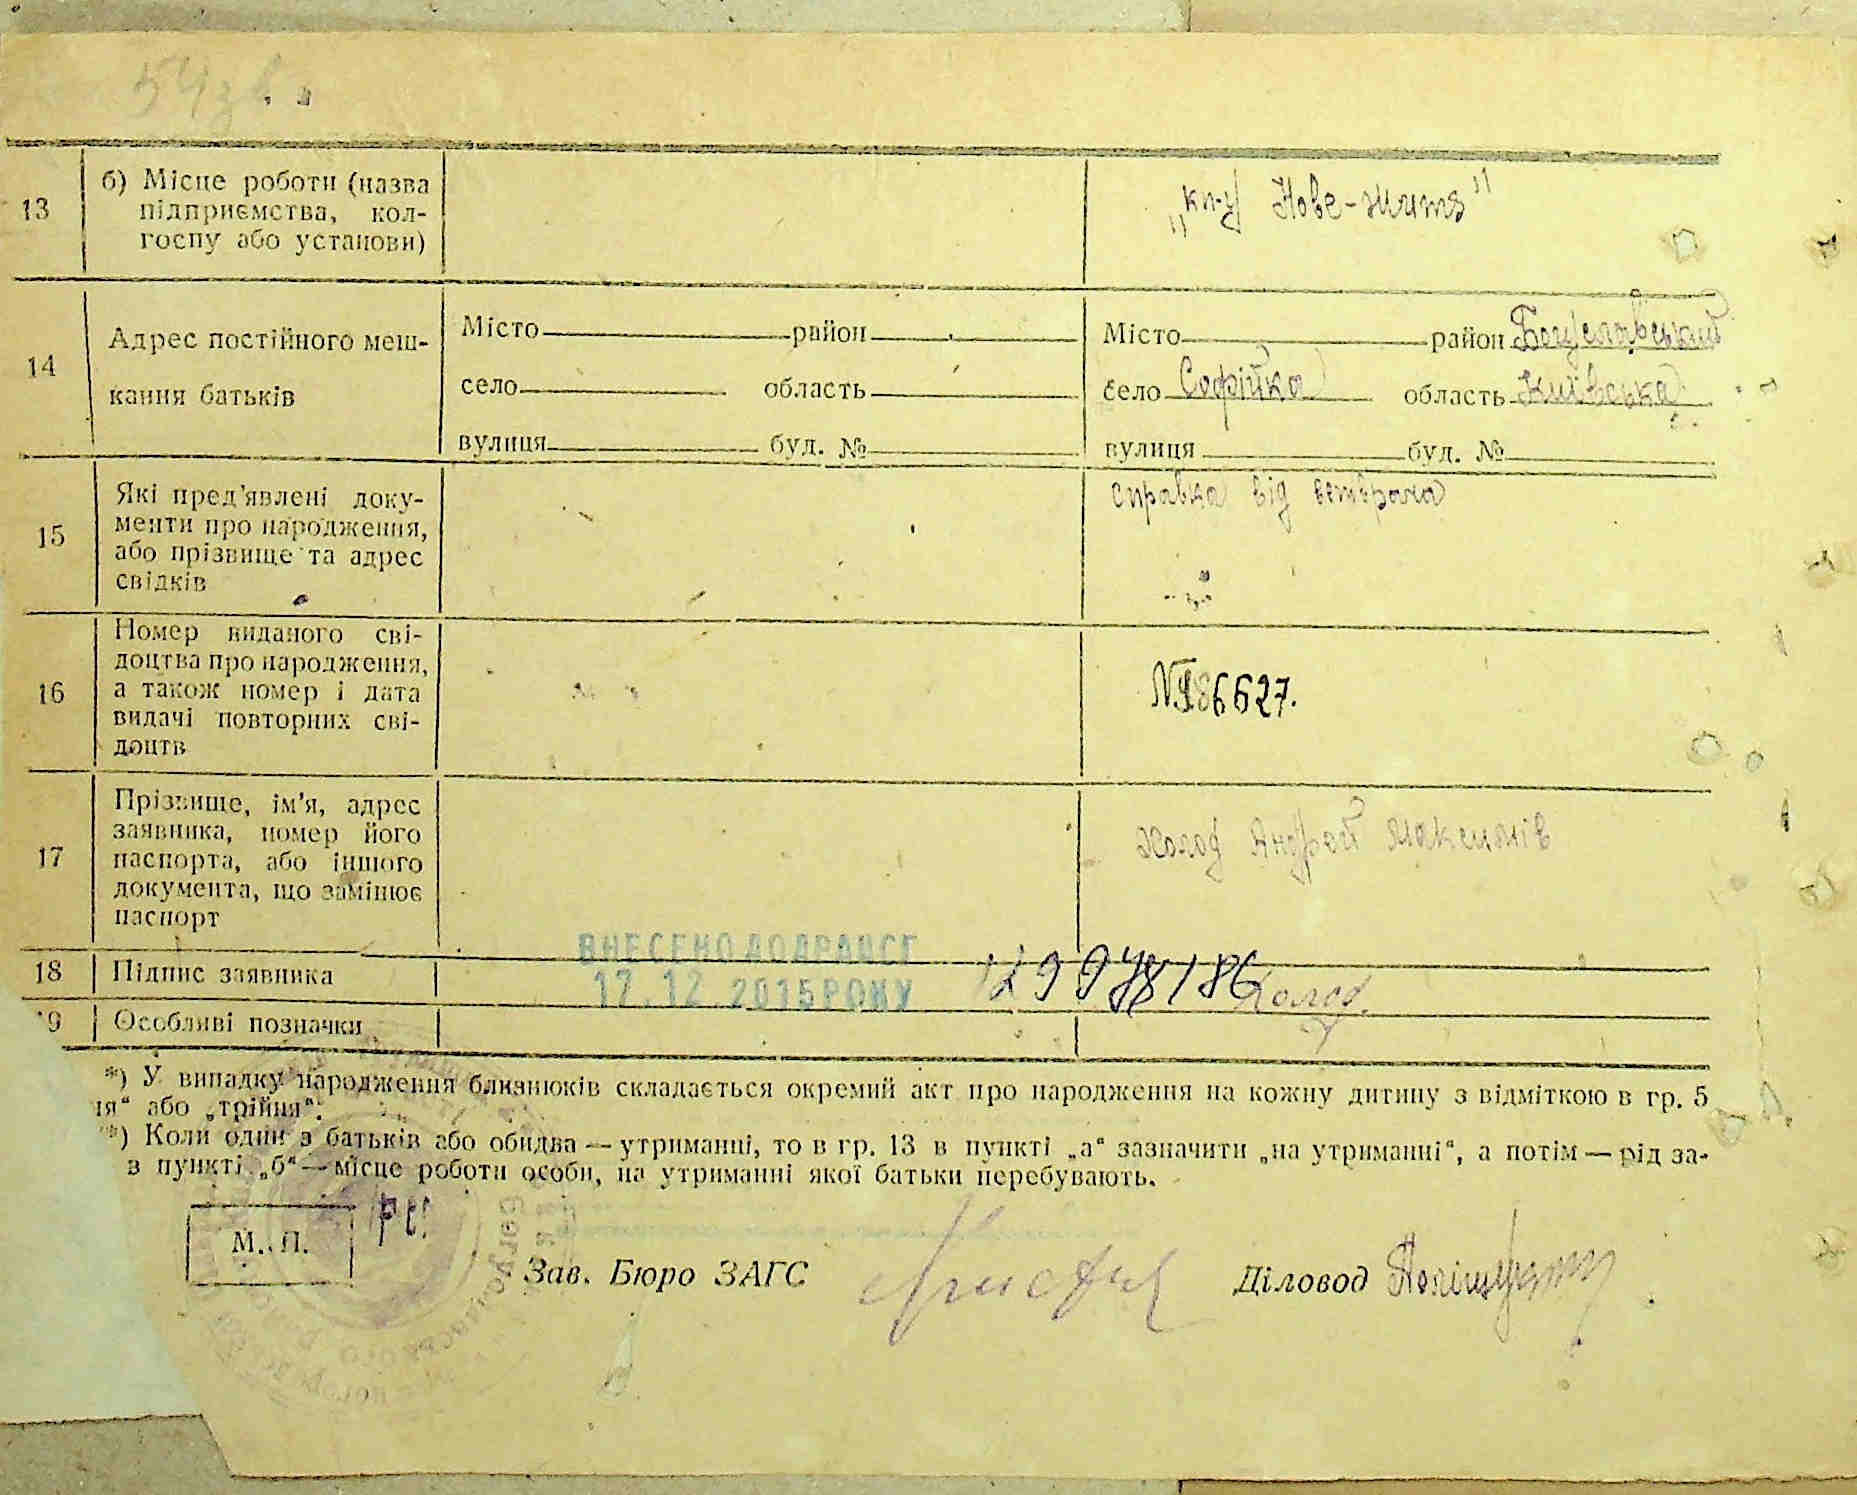 54зв.
13
б) Місце роботи (назва
підприємства, кол-
госпу або установи)
"к-п-у Нове-життя"
14
Адрес постійного меш-
кання батьків
Місто район
село область
вулиця буд. №
Місто район Богуславський
село Софійка область Київська
вулиця буд. №
15
Які пред'явлені доку-
менти про народження,
або прізвище та адрес
свідків
справка від
16
Номер виданого сві-
доцтва про народження,
а також номер і дата
видачі повторних сві-
доцтв
6627.
17
Прізвище, ім'я, адрес
заявника, номер його
паспорта, або іншого
документа, що замінює
паспорт
Холод Андрей Максимів
18
Підпис заявника
ВНЕСЕНО ДО ДРАЦСГ
17.12.2015 РОКУ
Холод
9
Особливі позначки
*) У випадку народження близнюків складається окремий акт про народження на кожну дитину з відміткою в гр. 5
ія“ або „трійня“.
*) Коли один з батьків або обидва — утриманні, то в гр. 13 в пункті „а“ зазначити „на утриманні“, а потім — рід за-
в пункті „б“ — місце роботи особи, на утриманні якої батьки перебувають.
М. П.
Зав. Бюро ЗАГС
Діловод